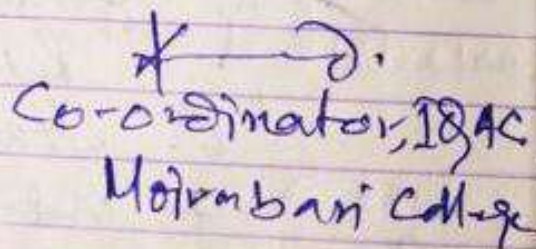 Co-ordinator, IQAC
Moirabari College